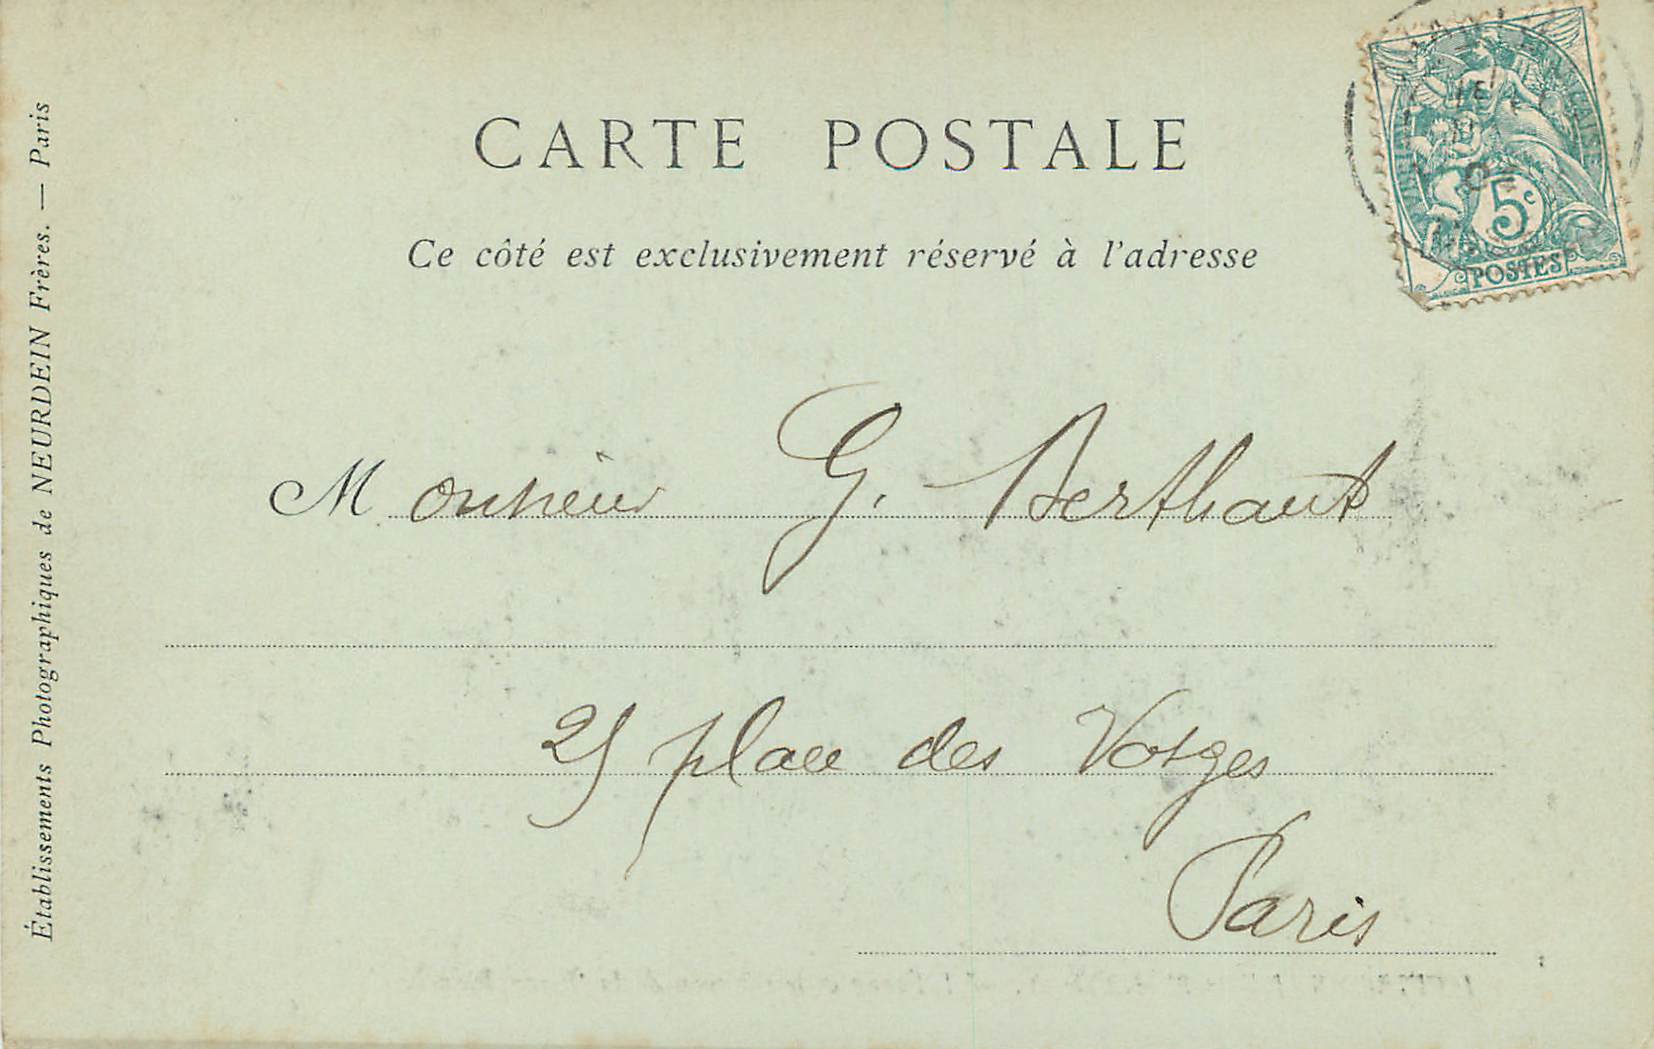 CARTE POSTALE
Ce côté est exclusivement réservé à l'adresse
Monsieur G. Berthaut
25 place des Vosges
Paris
Établissements Photographiques de NEURDEIN Frères. — Paris
5c
POSTES